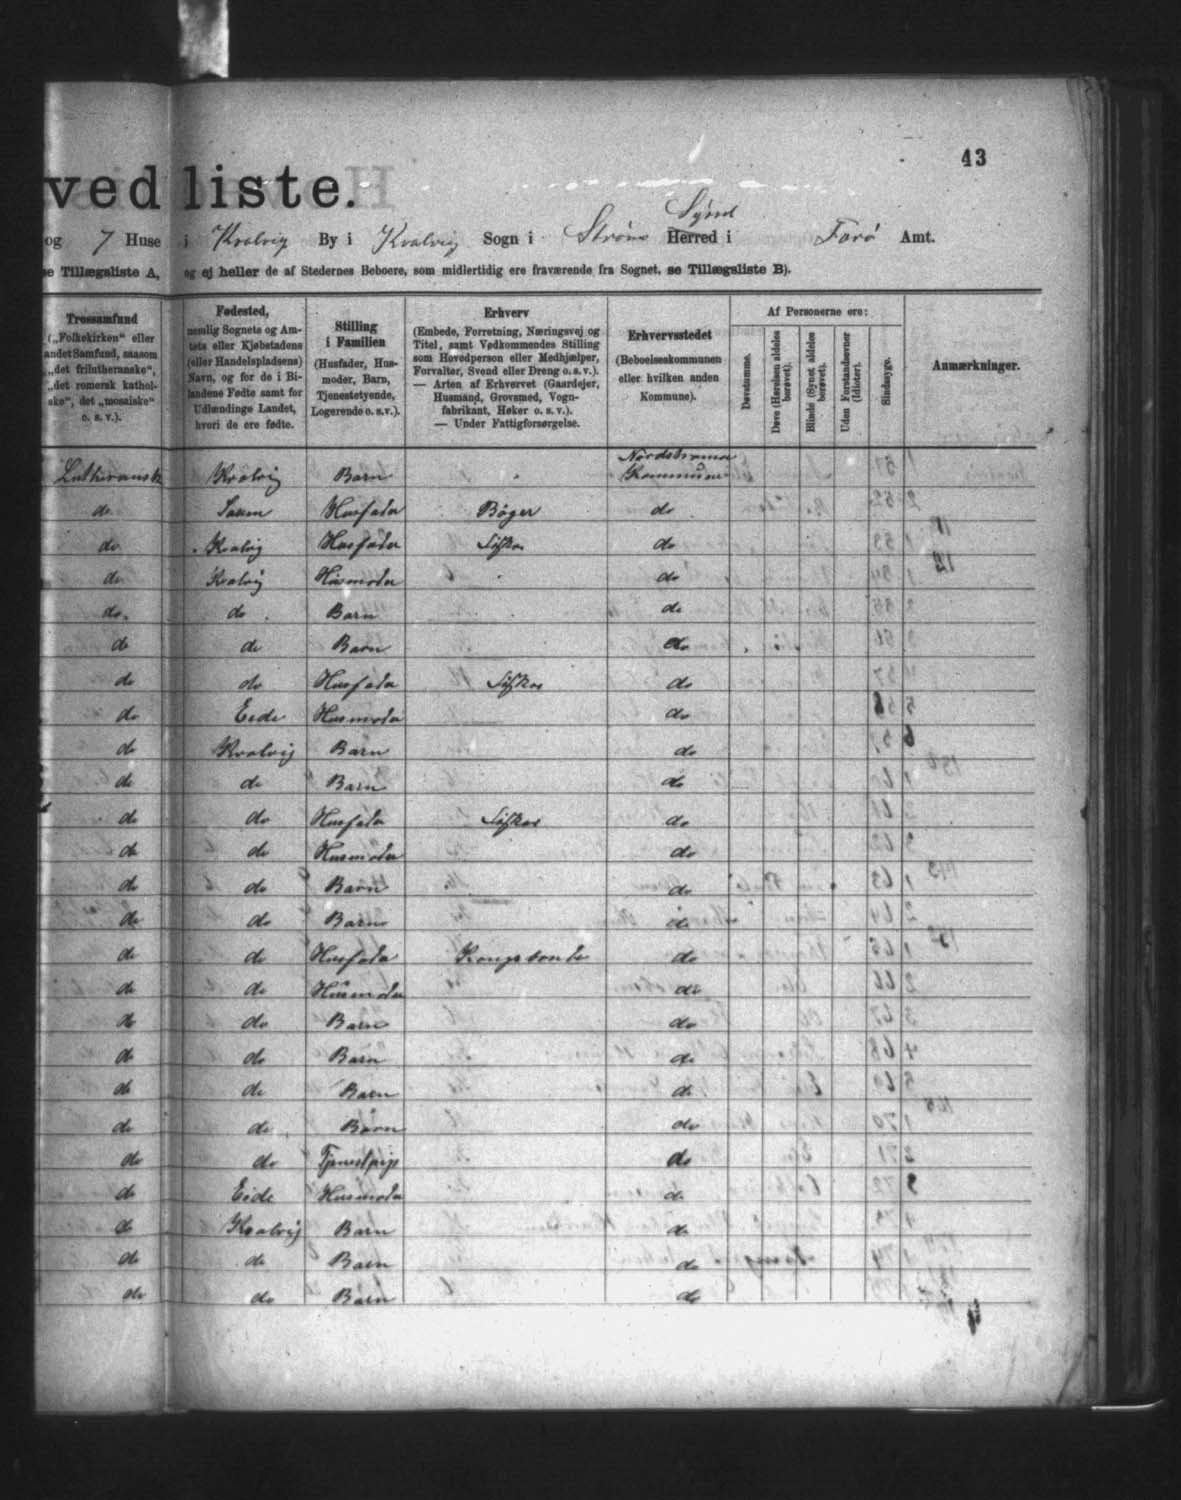 43
ved liste.
og 7 Huse i Kvalvig By i Kvalvig Sogn i Strömo Herred i Færö Amt.
Syssel
se Tillægsliste A, og ej heller de af Stedernes Beboere, som midlertidig ere fraværende fra Sognet, se Tillægsliste B).
Trossamfund
(„Folkekirken“ eller
andet Samfund, saasom
„det frilutheranske“,
„det romersk kathol-
ske“, det „mosaiske“
o. s. v.).
Fødested,
nemlig Sognets og Am-
tets eller Kjøbstadens
(eller Handelspladsens)
Navn, og for de i Bi-
landene Fødte samt for
Udlændinge Landet,
hvori de ere fødte.
Stilling
i Familien
(Husfader, Hus-
moder, Barn,
Tjenestetyende,
Logerende o. s. v.).
Erhverv
(Embede, Forretning, Næringsvej og
Titel, samt Vedkommendes Stilling
som Hovedperson eller Medhjælper,
Forvalter, Svend eller Dreng o. s. v.).
— Arten af Erhvervet (Gaardejer,
Husmand, Grovsmed, Vogn-
fabrikant, Høker o. s. v.).
— Under Fattigforsørgelse.
Erhvervsstedet
(Beboelseskommunen
eller hvilken anden
Kommune).
Af Personerne ere:
Døvstumme.
Døve (Hørelsen aldeles
berøvet).
Blinde (Synet aldeles
berøvet).
Uden Forstandsevner
(Idioter).
Sindssyge.
Anmærkninger.
Lutheransk Kvalvig Barn Nordstrømø Kommune
do Saxen Husfader Bøger do
do Kvalvig Husfader Fisker do
do Kvalvig Husmoder do
do. do Barn do
do do Barn do
do do Husfader Fisker do
do Eide Husmoder do
do Kvalvig Barn do
do do Barn do
do do Husfader Fisker do
do do Husmoder do
do do Barn do
do do Barn do
do do Husfader Kongsbonde do
do do Husmoder do
do do Barn do
do do Barn do
do do Barn do
do do Barn do
do do Tjenestpige do
do Eide Husmoder do
do Kvalvig Barn do
do do Barn do
do do Barn do